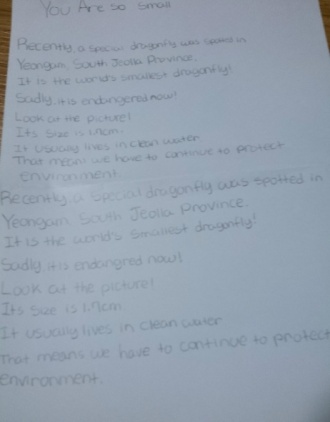 You Are so small
Recently, a special dragonfly was spotted in
Yeongam, South Jeolla Province.
It is the world's smallest dragonfly!
Sadly, it is endangered now!
Look at the picture!
Its size is 1.7cm.
It usually lives in clean water.
That means we have to continue to protect
environment.
Recently, a special dragonfly was spotted in
Yeongam, South Jeolla Province.
It is the world's smallest dragonfly!
Sadly it is endangred now!
Look at the picture!
Its size is 1.7cm
It usually lives in clean water
That means we have to continue to protect
environment.